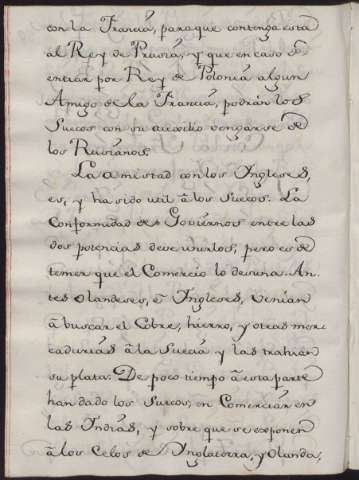 con la Francia, para que contenga esta
al Rey de Prusia, y que en caso de
entrar por Rey de Polonia algun
Amigo de la Francia, podrán los
Suecos con su auxilio vengarse de
los Rusianos.
La amistad con los Ingleses,
es, y ha sido util â los Suecos. La
Conformidad de Goviernos entre las
dos potencias deve unirlos, pero es de
temer que el Comercio lo desuna. An-
tes Olandeses, ê Ingleses, venian
â buscar el Cobre, hierro, y otras mer-
cadurias â la Suecia y las trahian
su plata. De poco tiempo â esta parte
han dado los Suecos, en Comerciar en
las Indias, y sobre que se exponen
â los Celos de Inglaterra, y Olanda,